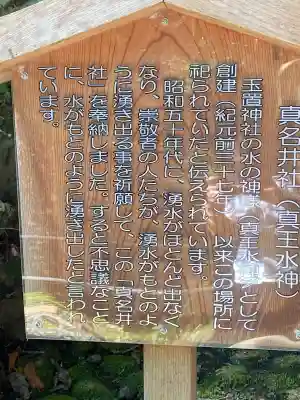 真名井社（真王水神）
玉置神社の水の神様（真王水神）として
創建（紀元前三十七年）以来この場所に
祀られていたと伝えられています。
昭和五十年代に、湧水がほとんど出なく
なり、崇敬者の人たちが、湧水がもとのよ
うに湧き出る事を祈願して、この「真名井
社」を奉納しました。すると不思議なこと
に、水がもとのように湧き出したと言われ
ています。